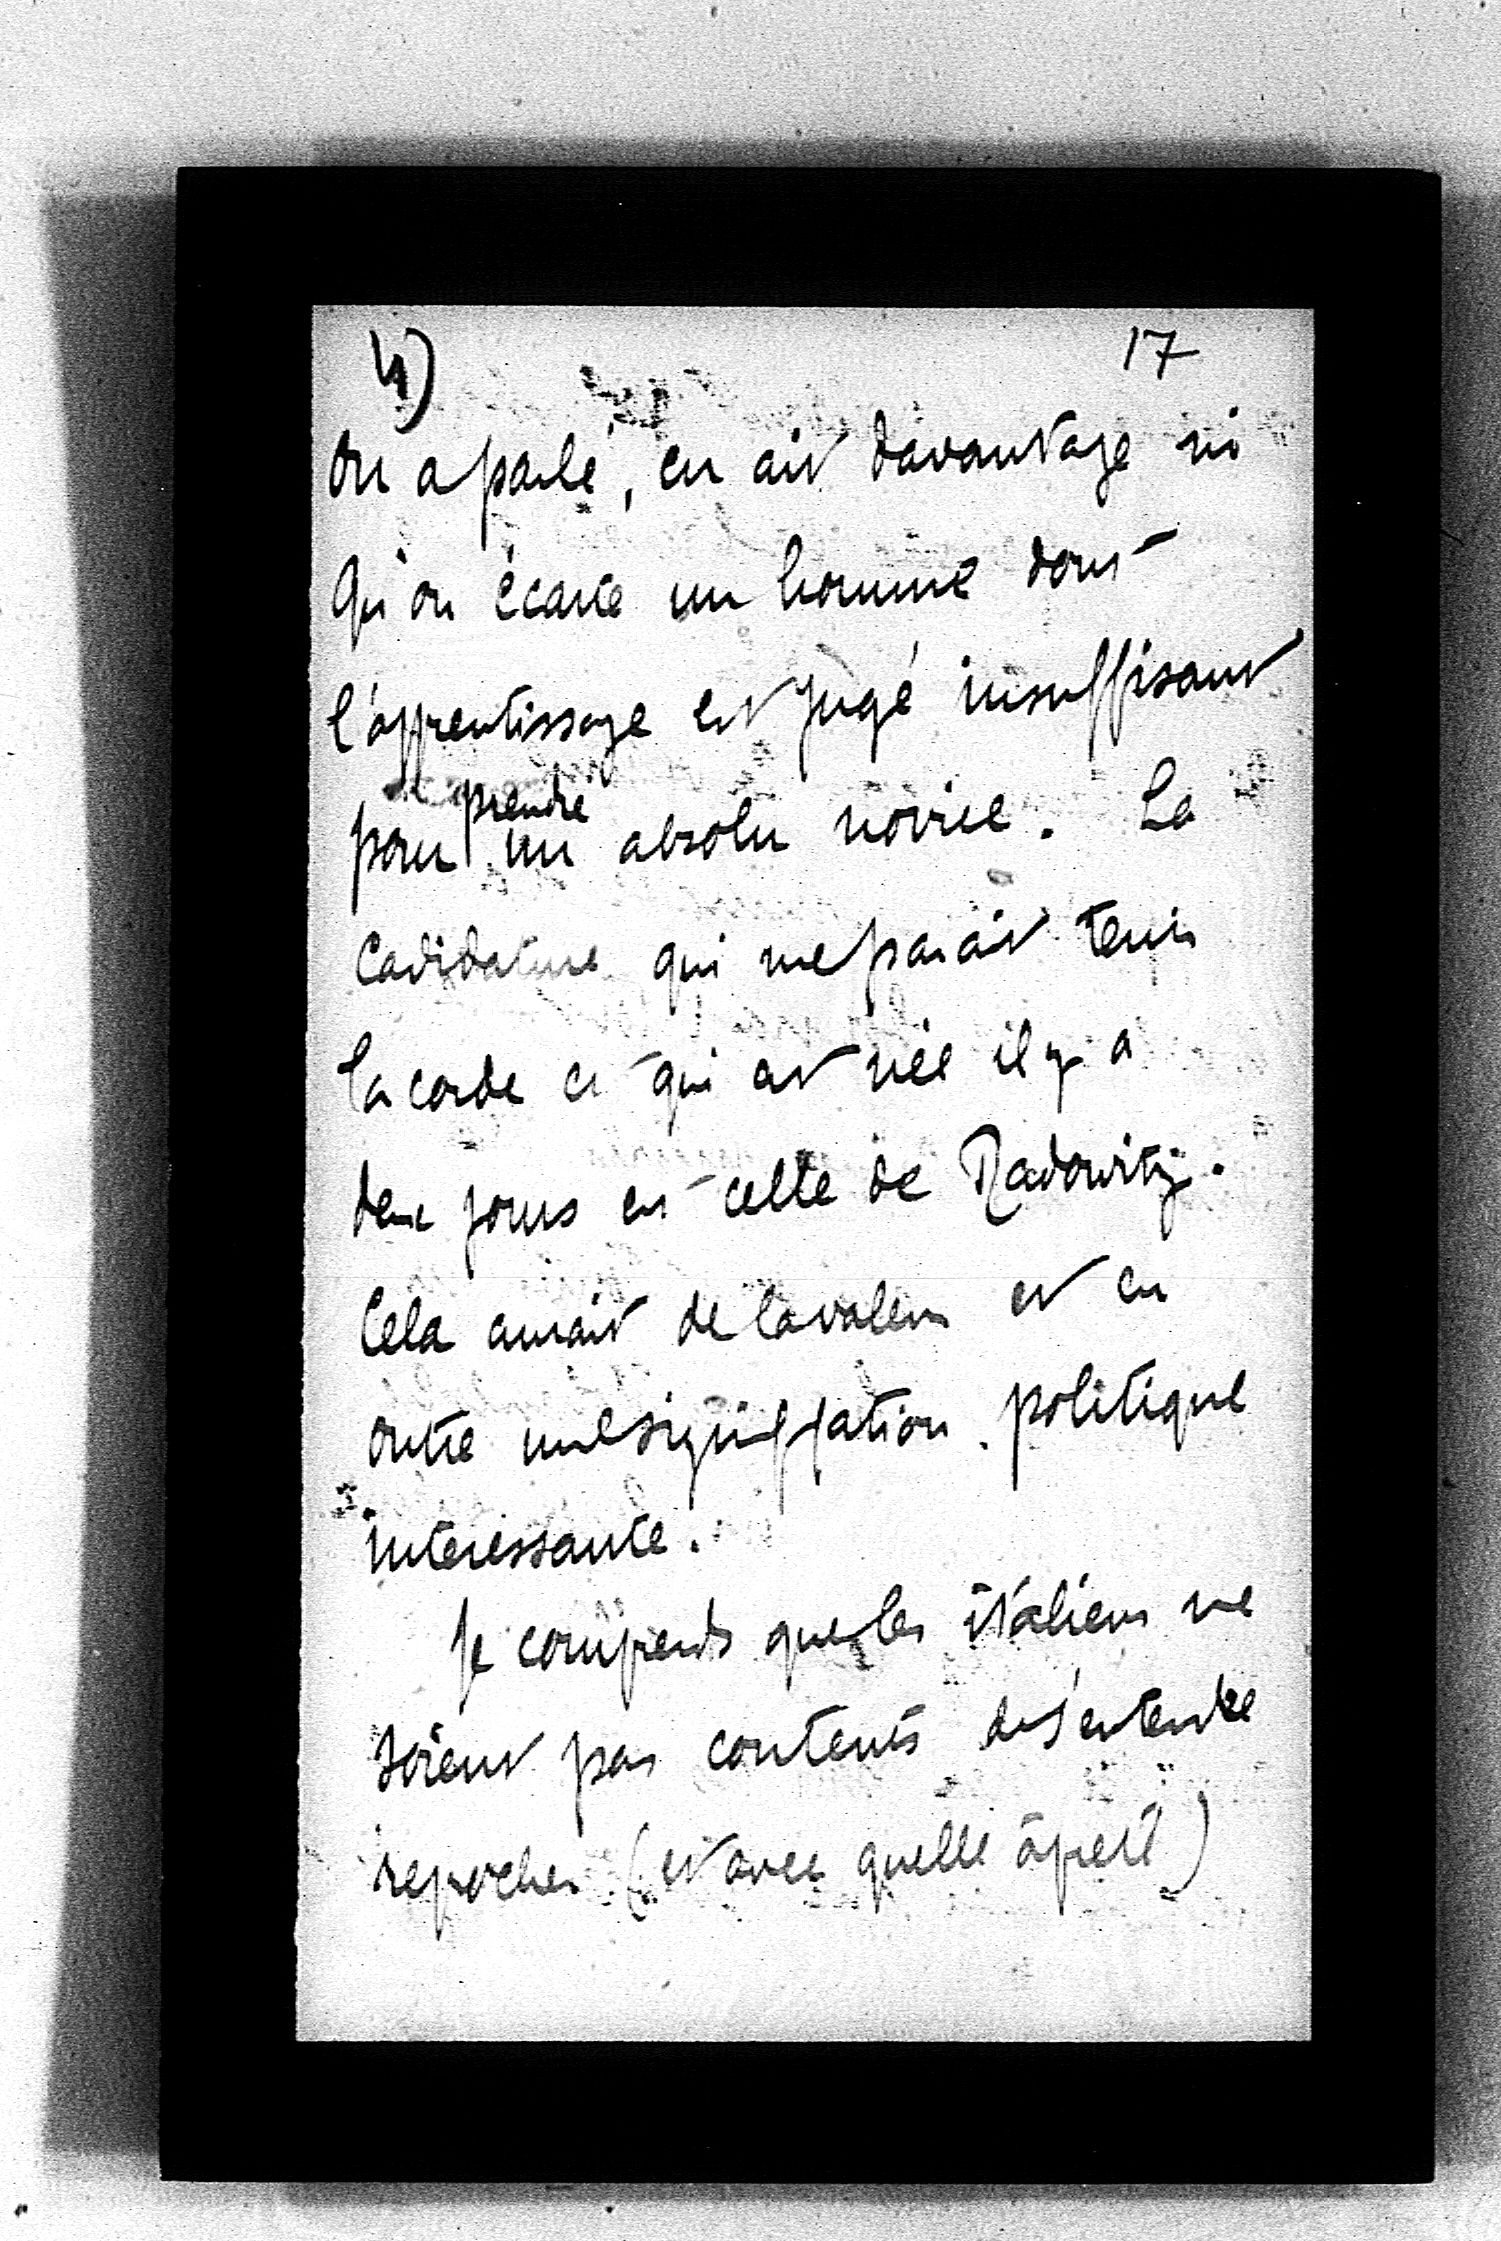 4) 17
on a parlé, en ait davantage ni
qu'on écarte un homme dont
l'apprentissage est jugé insuffisant
prendre
pour un absolu novice. La
Cadidature qui me parait tenir
la corde et qui est née il y a
deux jours est celle de Radowitz.
Cela aurait de la valeur et en
outre une signification politique
interessante.
Je comprends que les italiens ne
soient pas contents de s'entendre
reprocher (et avec quelle âpreté)